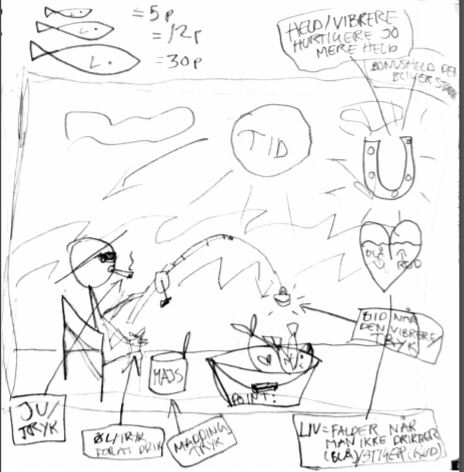 = 5 P
= 12 P
= 30 P
HELD/VIBRERE
HURTIGERE JO
MERE HELD
BONUSHELD DEN
BLIVER STØRRE
TID
BLÅ
RØD
BID NÅR
DEN VIBRERE
TRYK
MAJS
POINT:
JU/
TRYK
ØL/TRYK
FOR AT DRIK
MADDING
TRYK
LIV = FALDER NÅR
MAN IKKE DRIKKER
(BLÅ) STIGER (RØD)